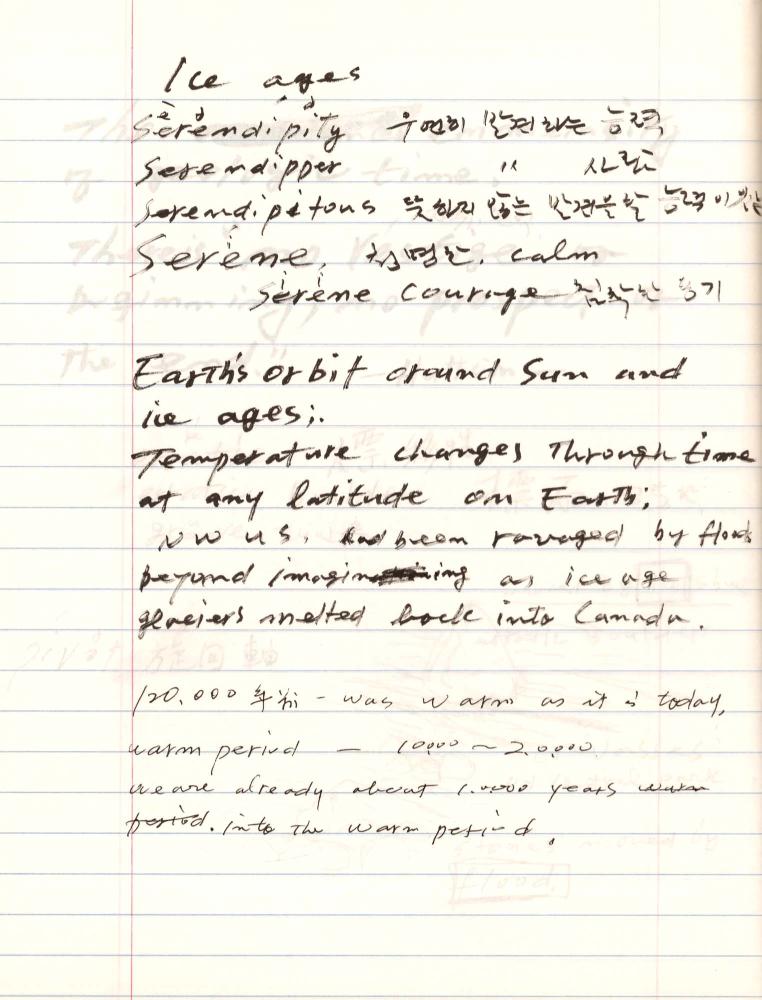 Ice ages
Serendipity 우연히 발견하는 능력
Serendipper 〃 사람
Serendipitous 뜻하지 않는 발견을 할 능력이 있는
Serene, 청명한. calm
serene courage 침착한 용기
Earth's orbit around Sun and
ice ages;.
Temperature changes Through time
at any latitude on Earth;
NW US. had been ravaged by floods
beyond imagining as ice age
glaciers melted back into Canada.
120.000 年前 - was warm as it is today,
warm period — 10000 ~ 20.000.
we are already about 10000 years warm
period. into The warm period.